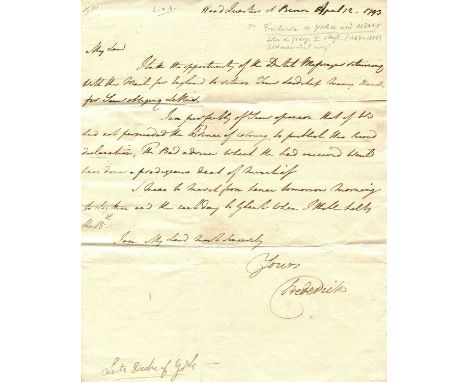 L.A.S.
Head Quarters at April 12 1793
Frederick de YORK and ALBANY
My Lord
I take the opportunity of the Dutch Messenger returning
with the Mail for England to return Your Lordship many thanks
for Your obliging letter.
I am perfectly of Your opinion that if We
had not persuaded the Prince of Cobourg to publish his second
declaration, the Bad advice which He had received would
have done a prodigious deal of mischief.
I mean to march from hence tomorrow morning
to and the next day to when I shall halt
the 15th
I am My Lord most sincerely
Yours
Frederick
Late Duke of York